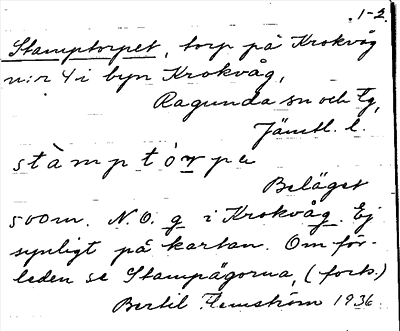 1-2.
Stamptorpet, torp på Krokvåg
n:r 4 i byn Krokvåg,
Ragunda sn och tg,
Jämtl. l.
stàmptòrpe
Beläget
500 m. N.O. g i Krokvåg. Ej
synligt på kartan. Om för-
leden se Stampågorna, (forts.)
Bertil Flemström 1936.